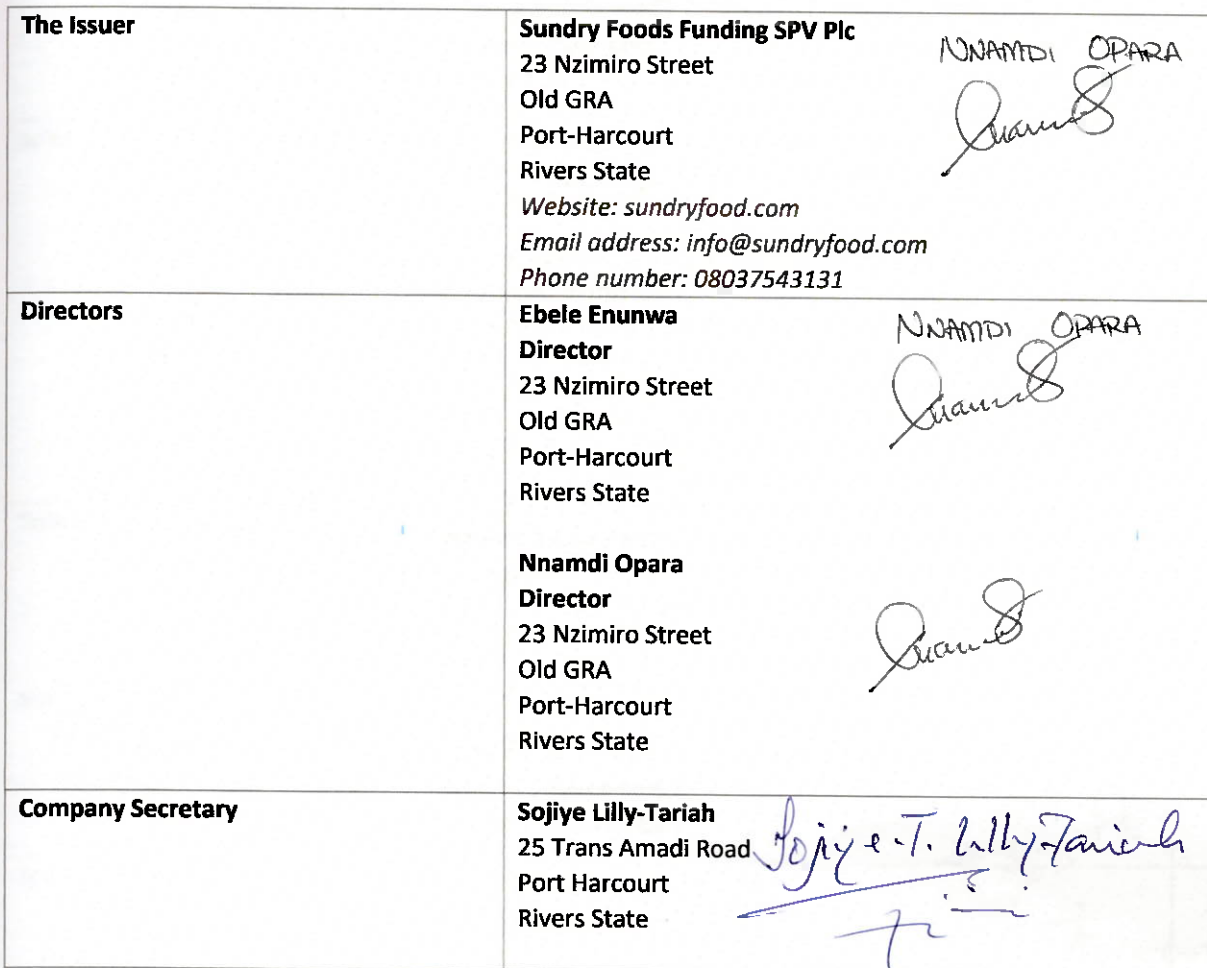 The Issuer
Sundry Foods Funding SPV Plc
23 Nzimiro Street
Old GRA
Port-Harcourt
Rivers State
Website: sundryfood.com
Email address: info@sundryfood.com
Phone number: 08037543131
NNAMDI OPARA
Directors
Ebele Enunwa
Director
23 Nzimiro Street
Old GRA
Port-Harcourt
Rivers State
NNAMDI OPARA
Nnamdi Opara
Director
23 Nzimiro Street
Old GRA
Port-Harcourt
Rivers State
Company Secretary
Sojiye Lilly-Tariah
25 Trans Amadi Road
Port Harcourt
Rivers State
Sojiye .T. Lilly-Tariah